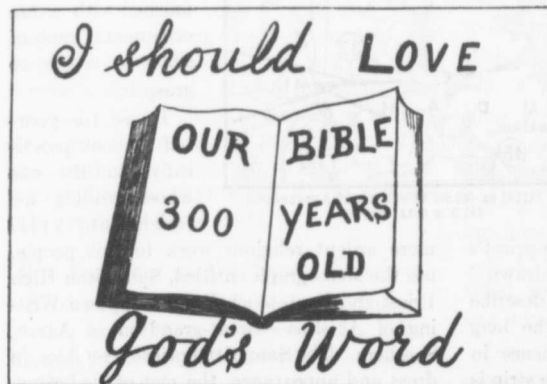 I should LOVE
OUR BIBLE
300 YEARS
OLD
God's Word